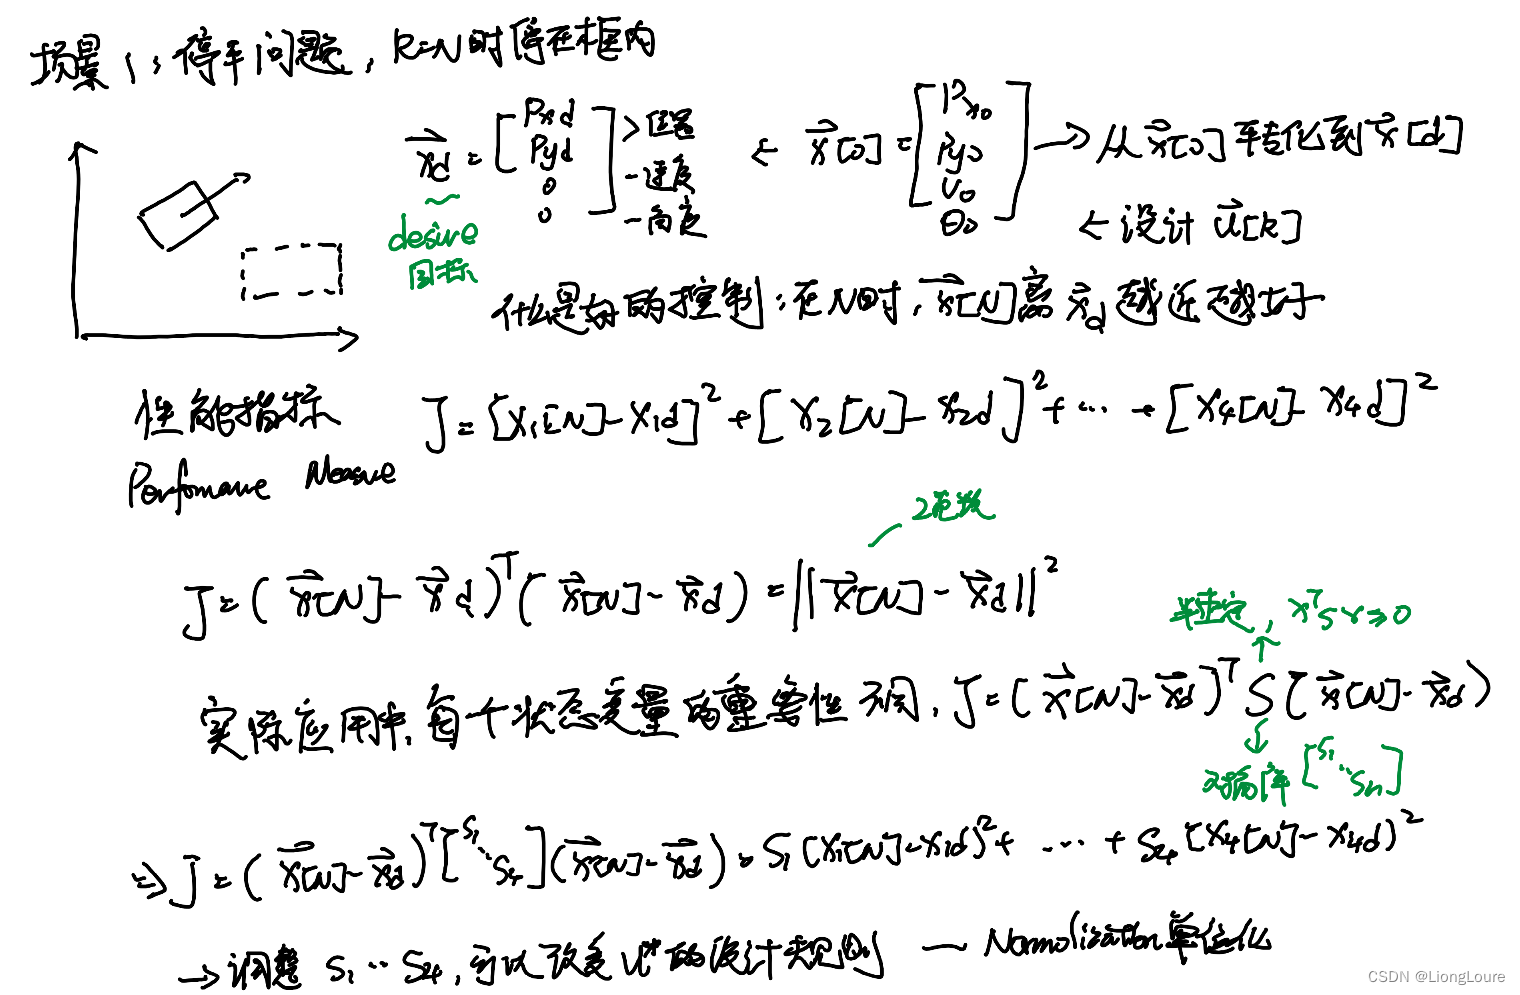 场景1：停车问题，k=N时停在框内
$\vec{x_d} = \begin{bmatrix} P_{xd} \\ P_{yd} \\ 0 \\ 0 \end{bmatrix}$ > 位置 - 速度 - 角度 ← $\vec{x}[0] = \begin{bmatrix} P_{x0} \\ P_{y0} \\ v_0 \\ \theta_0 \end{bmatrix}$ → 从 $\vec{x}[0]$ 转化到 $\vec{x}[d]$
desire
目标
← 设计 $\vec{u}[k]$
什么是好的控制：在N时，$\vec{x}[N]$ 离 $\vec{x}_d$ 越近越好
性能指标
Perfomance Measure
$J = [x_1[N] - x_{1d}]^2 + [x_2[N] - x_{2d}]^2 + \cdots + [x_4[N] - x_{4d}]^2$
2范数
$J = (\vec{x}[N] - \vec{x}_d)^T (\vec{x}[N] - \vec{x}_d) = \|\vec{x}[N] - \vec{x}_d\|^2$
半正定，$x^T S x \geq 0$
实际应用中，每个状态变量的重要性不同，$J = (\vec{x}[N] - \vec{x}_d)^T S (\vec{x}[N] - \vec{x}_d)$
对角阵 $\begin{bmatrix} S_1 & & \\ & \ddots & \\ & & S_n \end{bmatrix}$
$\Rightarrow J = (\vec{x}[N] - \vec{x}_d)^T \begin{bmatrix} S_1 & & \\ & \ddots & \\ & & S_4 \end{bmatrix} (\vec{x}[N] - \vec{x}_d) = S_1 (x_1[N] - x_{1d})^2 + \cdots + S_4 (x_4[N] - x_{4d})^2$
→ 调整 $S_1 \cdots S_4$，可以改变 $u^*$ 的设计规则 — Normolization 单位化
CSDN @LiongLoure